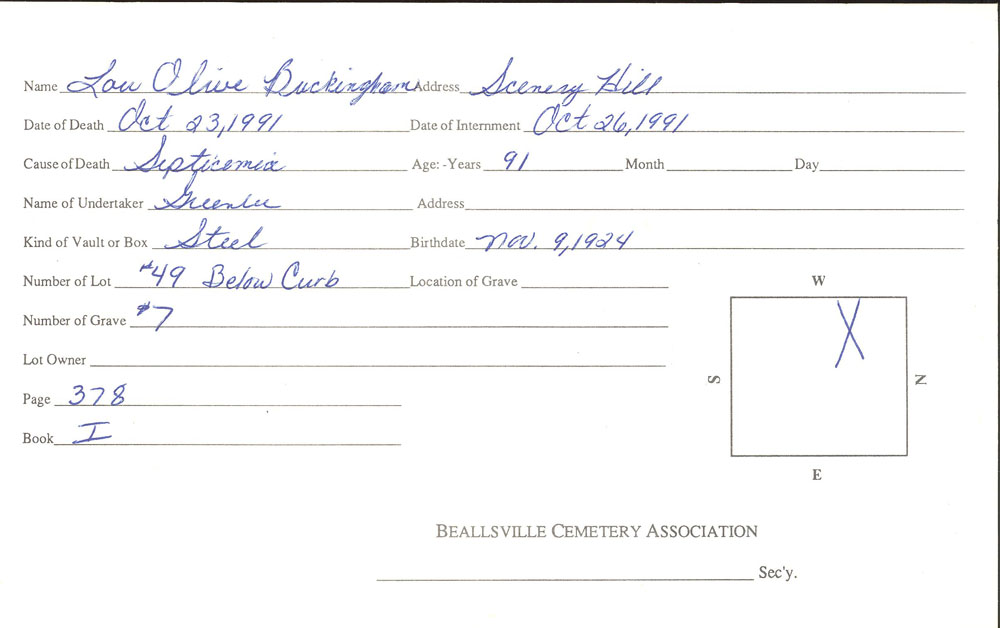 Name Lou Olive Buckingham Address Scenery Hill
Date of Death Oct 23, 1991 Date of Internment Oct 26, 1991
Cause of Death Septicemia Age: -Years 91 Month Day
Name of Undertaker Greenlee Address
Kind of Vault or Box Steel Birthdate Nov. 9, 1924
Number of Lot #49 Below Curb Location of Grave
W
Number of Grave #7
Lot Owner
S N
Page 378
Book I
E
BEALLSVILLE CEMETERY ASSOCIATION
Sec'y.